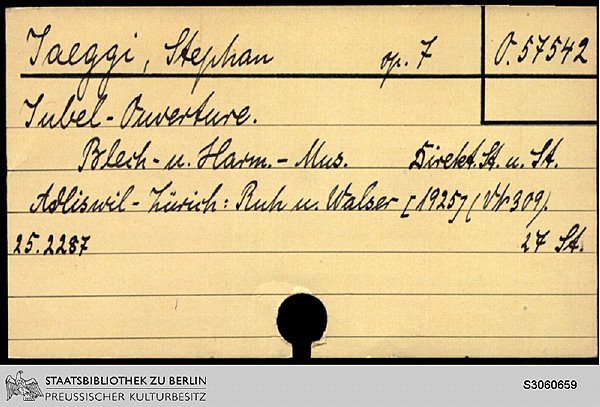 Jaeggi, Stephan op. 7 O. 57542
Jubel-Ouverture.
Blech- u. Harm.- Mus. Direkt. St. u. St.
Adliswil-Zürich: Ruh u. Walser [1925] (VNr 309).
25.2287 27 St.
STAATSBIBLIOTHEK ZU BERLIN
PREUSSISCHER KULTURBESITZ
S3060659